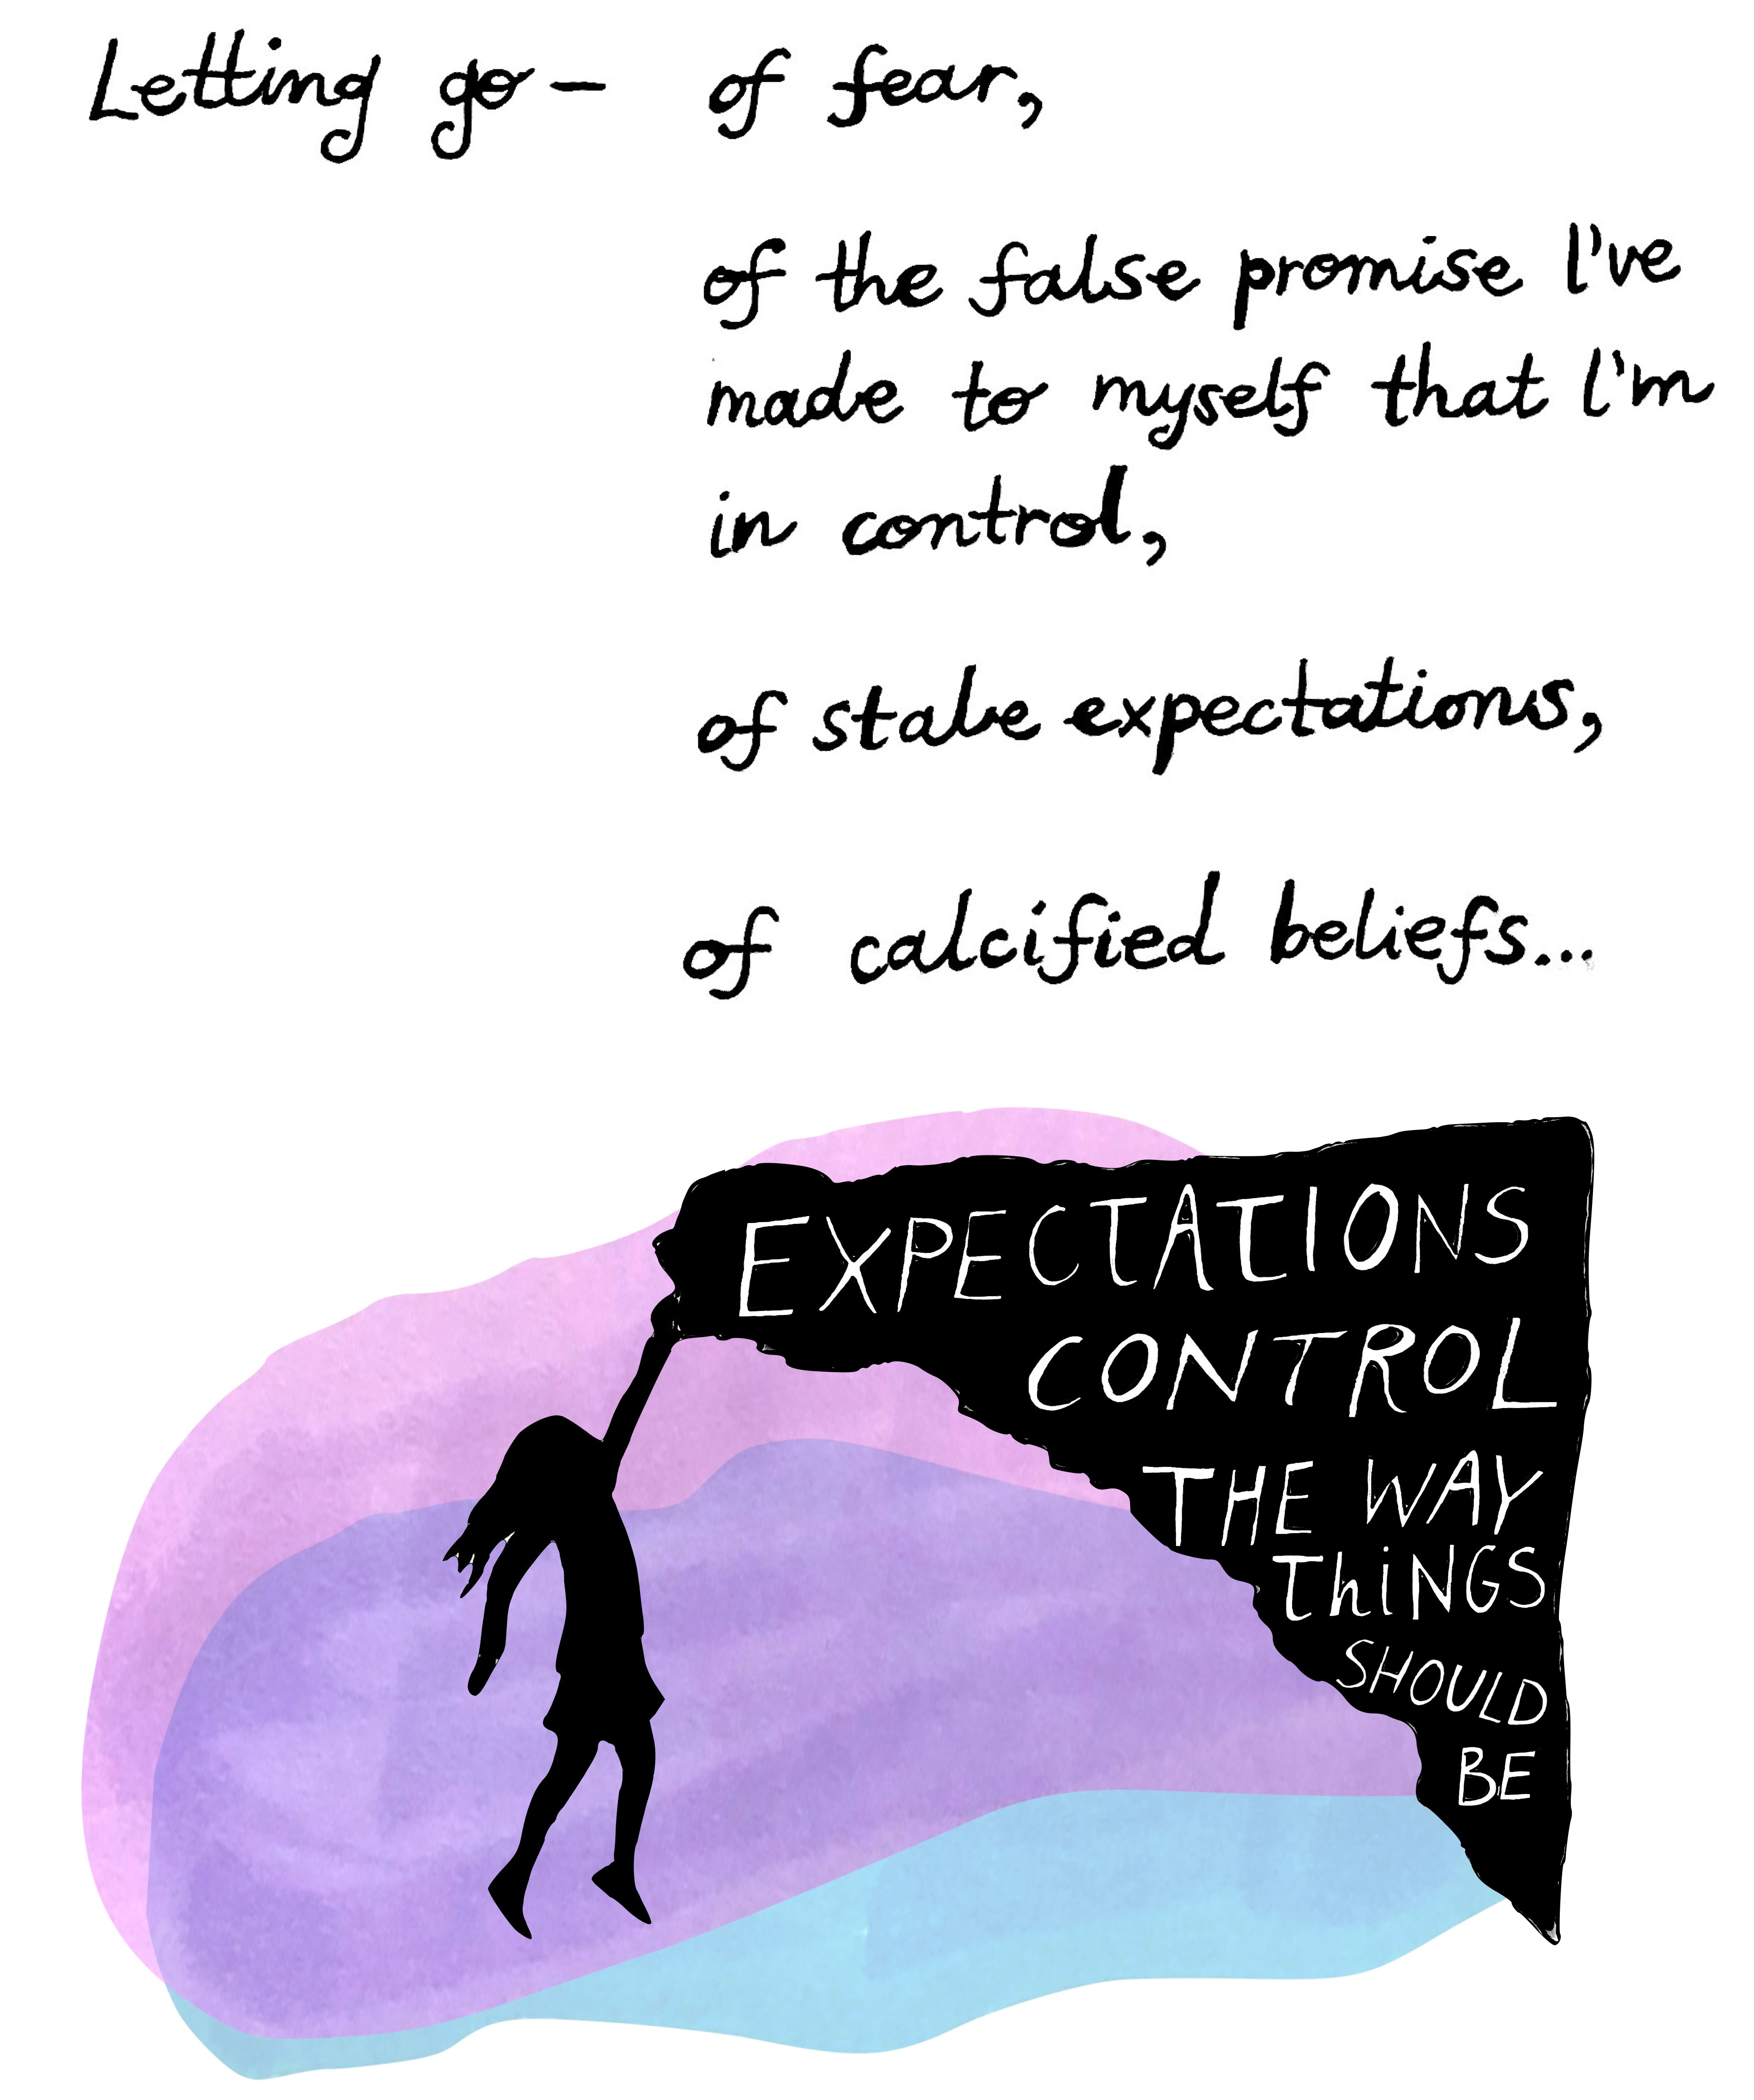 Letting go – of fear,
of the false promise I've
made to myself that I'm
in control,
of stale expectations,
of calcified beliefs...
EXPECTATIONS
CONTROL
THE WAY
ThiNGS
SHOULD
BE